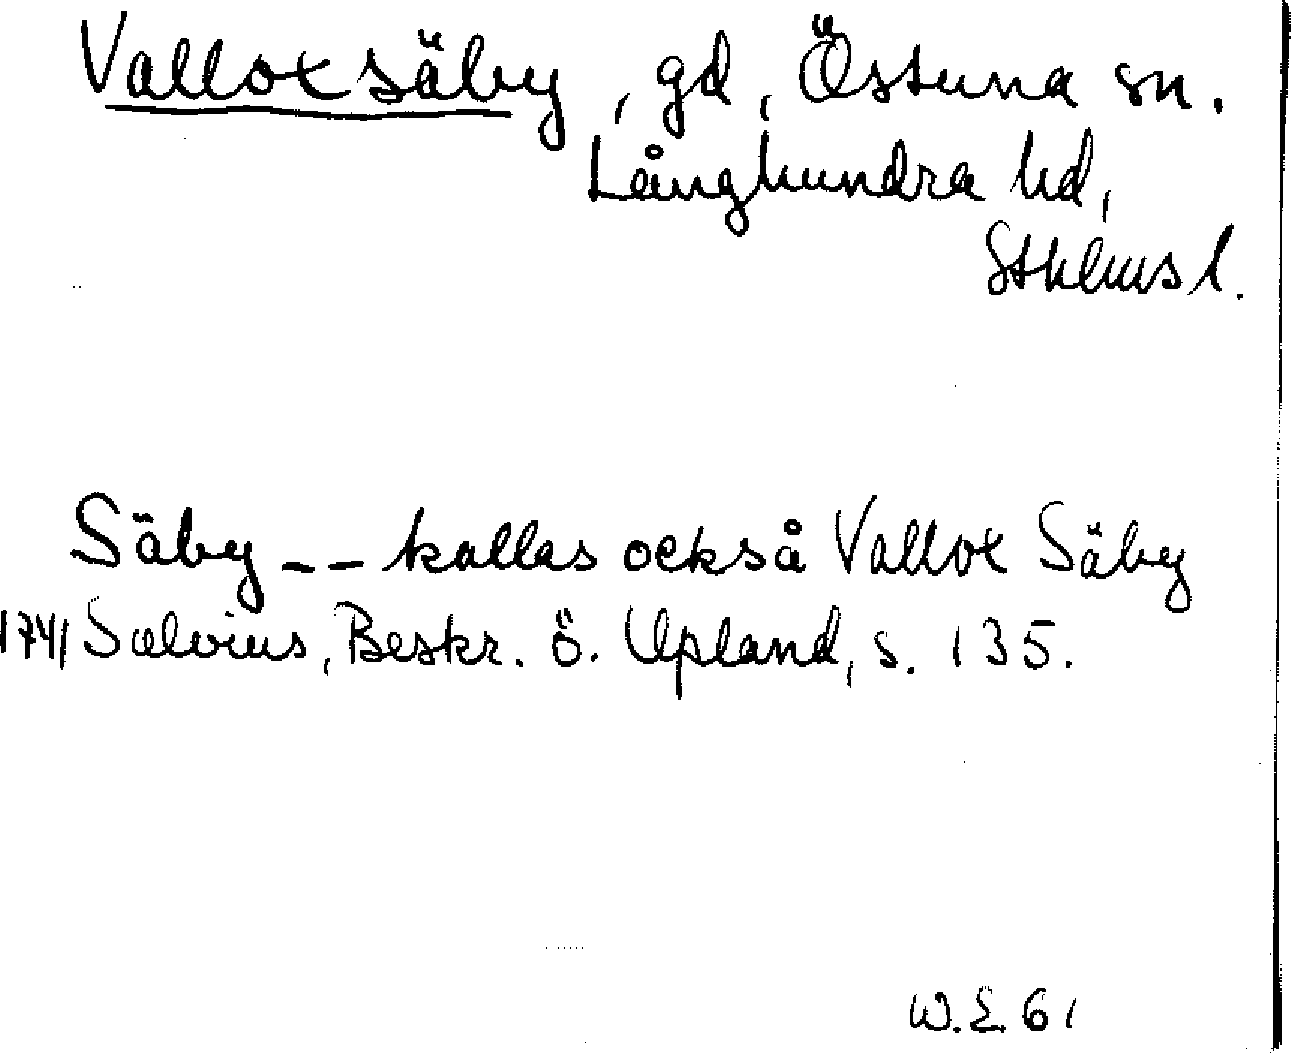 Valloxsäby, gd, Östuna sn.
Långhundra hd,
Sthlms l.
Säby -- kallas också Vallox Säby
1741 Salvius, Beskr. ö. Upland, s. 135.
W.E. 61